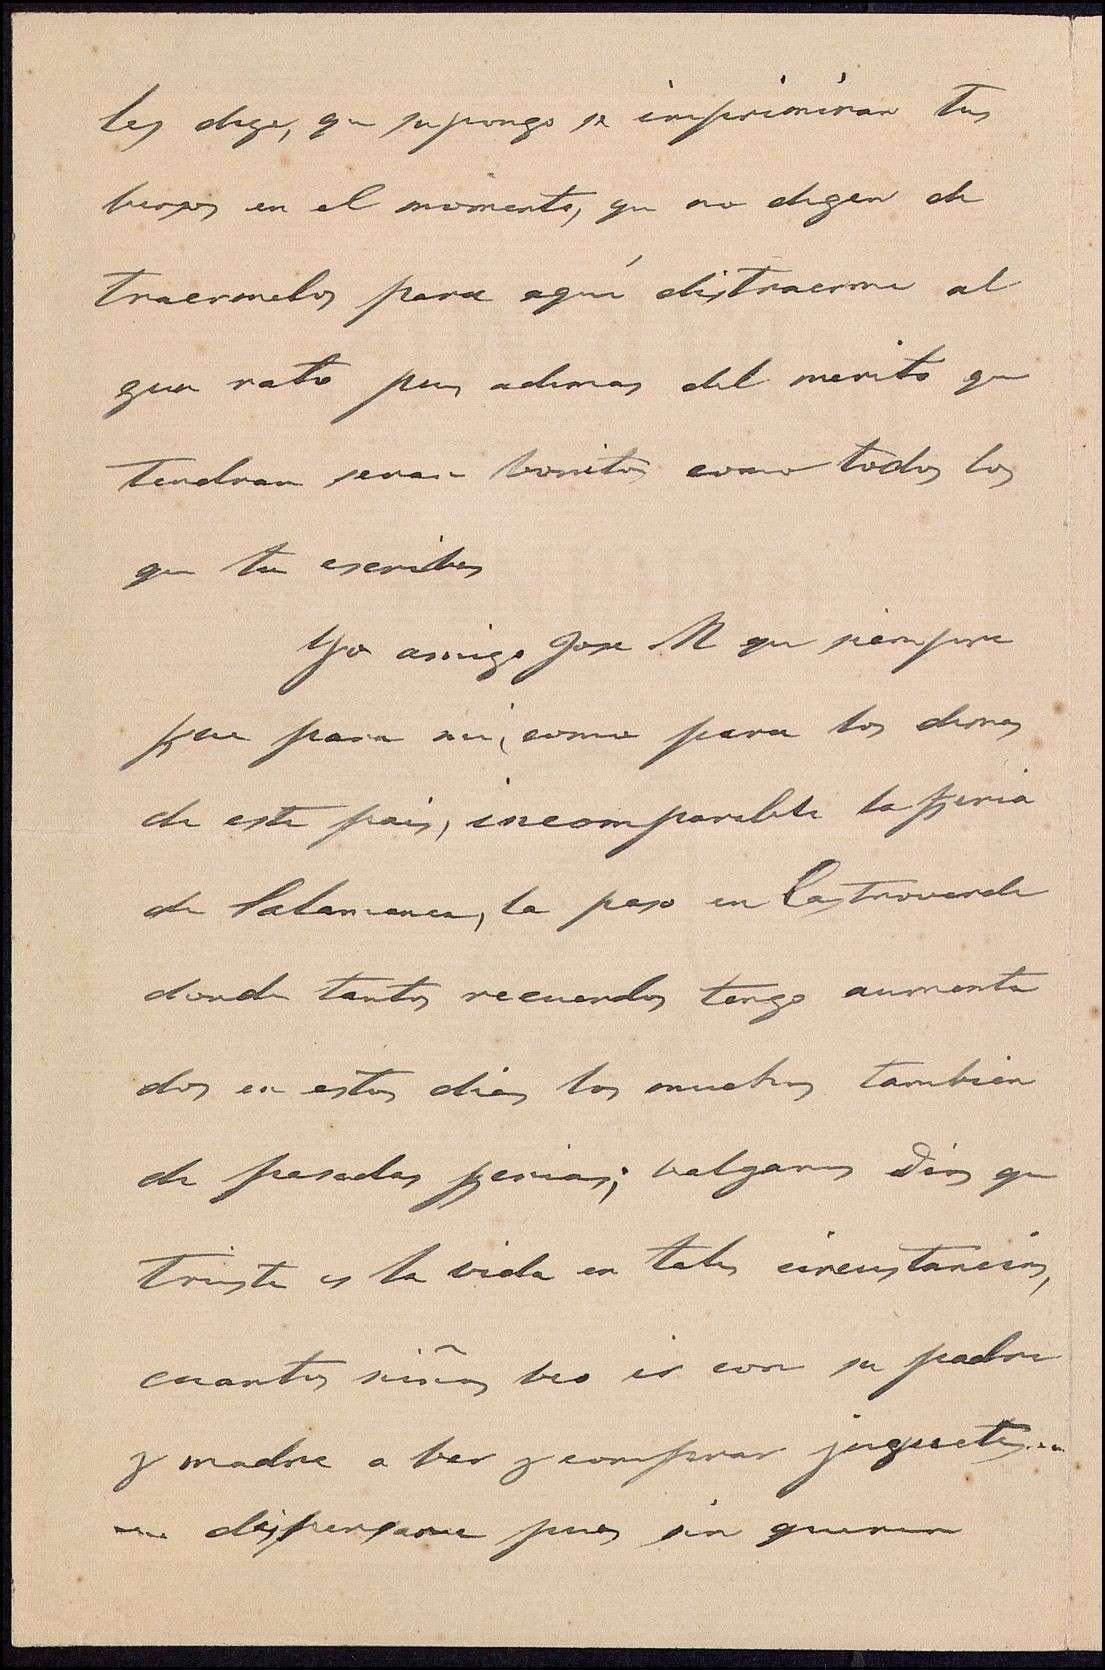 les dige, que supongo se imprimiran tus
bersos en el momento, que no digen de
traermelos para aquí distraerme al
gun rato pues ademas del merito que
tendran seran bonitos como todos los
que tu escribes
Yo amigo Jose M que siempre
fue para mi, como para los demas
de este pais, incomparable la feria
de Salamanca, la paso en Castroverde
donde tantos recuerdos tengo aumenta
dos en estos dias los muchos tambien
de pasadas ferias; valganos Dios que
triste es la vida en tales circustancias,
cuantos niños beo ir con su padre
y madre a ber y comprar juguetes....
.... dispensame pues sin querer